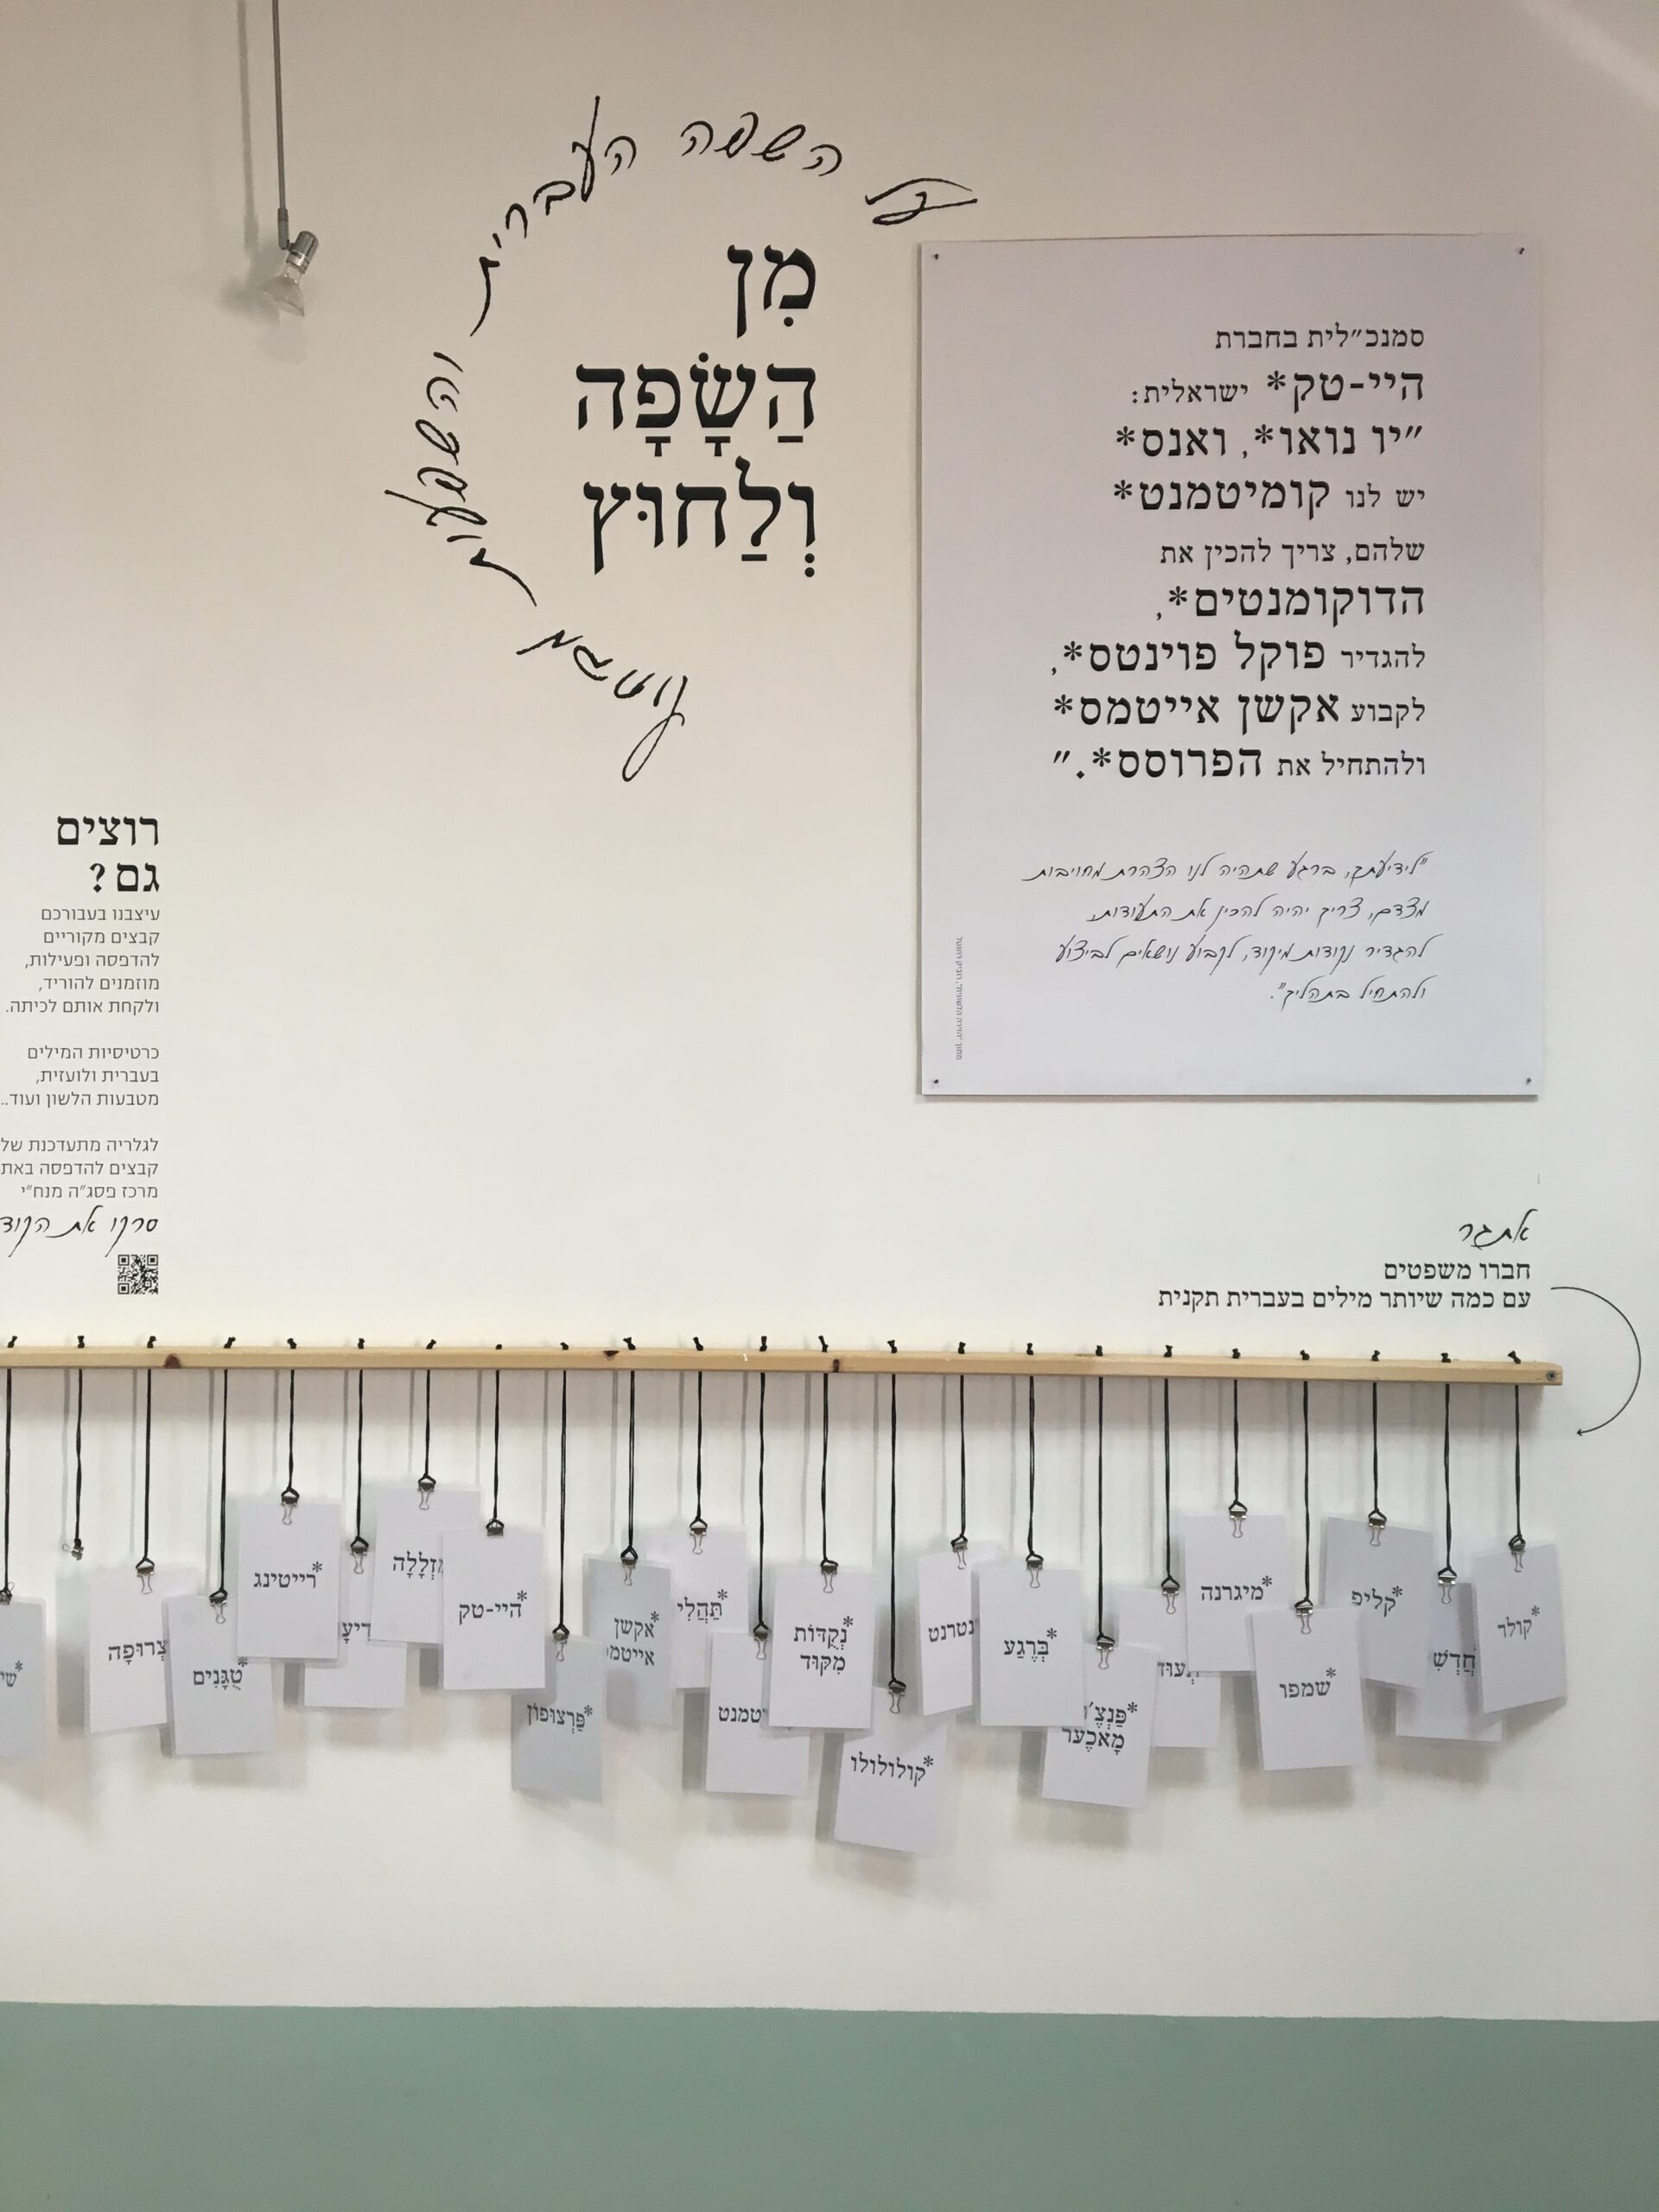 על השפה העברית והשפעות חוץ
מִן
הַשָּׂפָה
וְלַחוּץ
סמנכ״לית בחברת
היי-טק* ישראלית:
״יו נואו*, ואנס*
יש לנו קומיטמנט*
שלהם, צריך להכין את
הדוקומנטים*,
להגדיר פוקל פוינטס*,
לקבוע אקשן אייטמס*
ולהתחיל את הפרוסס*.״
"לידיעתך, ברגע שתהיה לנו הצהרת מחויבות
מצדם, צריך יהיה להכין את התעודות,
להגדיר נקודות מיקוד, לקבוע נושאים לביצוע
ולהתחיל בתהליך".
רוצים
גם?
עיצבנו בעבורכם
קבצים מקוריים
להדפסה ופעילות,
מוזמנים להוריד,
ולקחת אותם לכיתה.
כרטיסיות המילים
בעברית ולועזית,
מטבעות הלשון ועוד..
לגלריה מתעדכנת של
קבצים להדפסה באת
מרכז פסג"ה מנח"י
סרקו את הקוד
אתגר
חברו משפטים
עם כמה שיותר מילים בעברית תקנית
קולר*
חֲדְשׁ
קליפ*
שמפו*
מיגרנה*
פַּנְצֶ'ר*
מָאכֶער
בְּרֶגַע*
נטרנט
קולולולו*
נְקֻדּוֹת*
מִקּוּד
טמנט
תַּהֲלִי*
אקשן*
אייטמ
פַּרְצוּפוֹן*
היי-טק*
זְלָלָה
דיעָ
רייטינג*
טֻגָּנִים*
צְרוּפָה
שי*